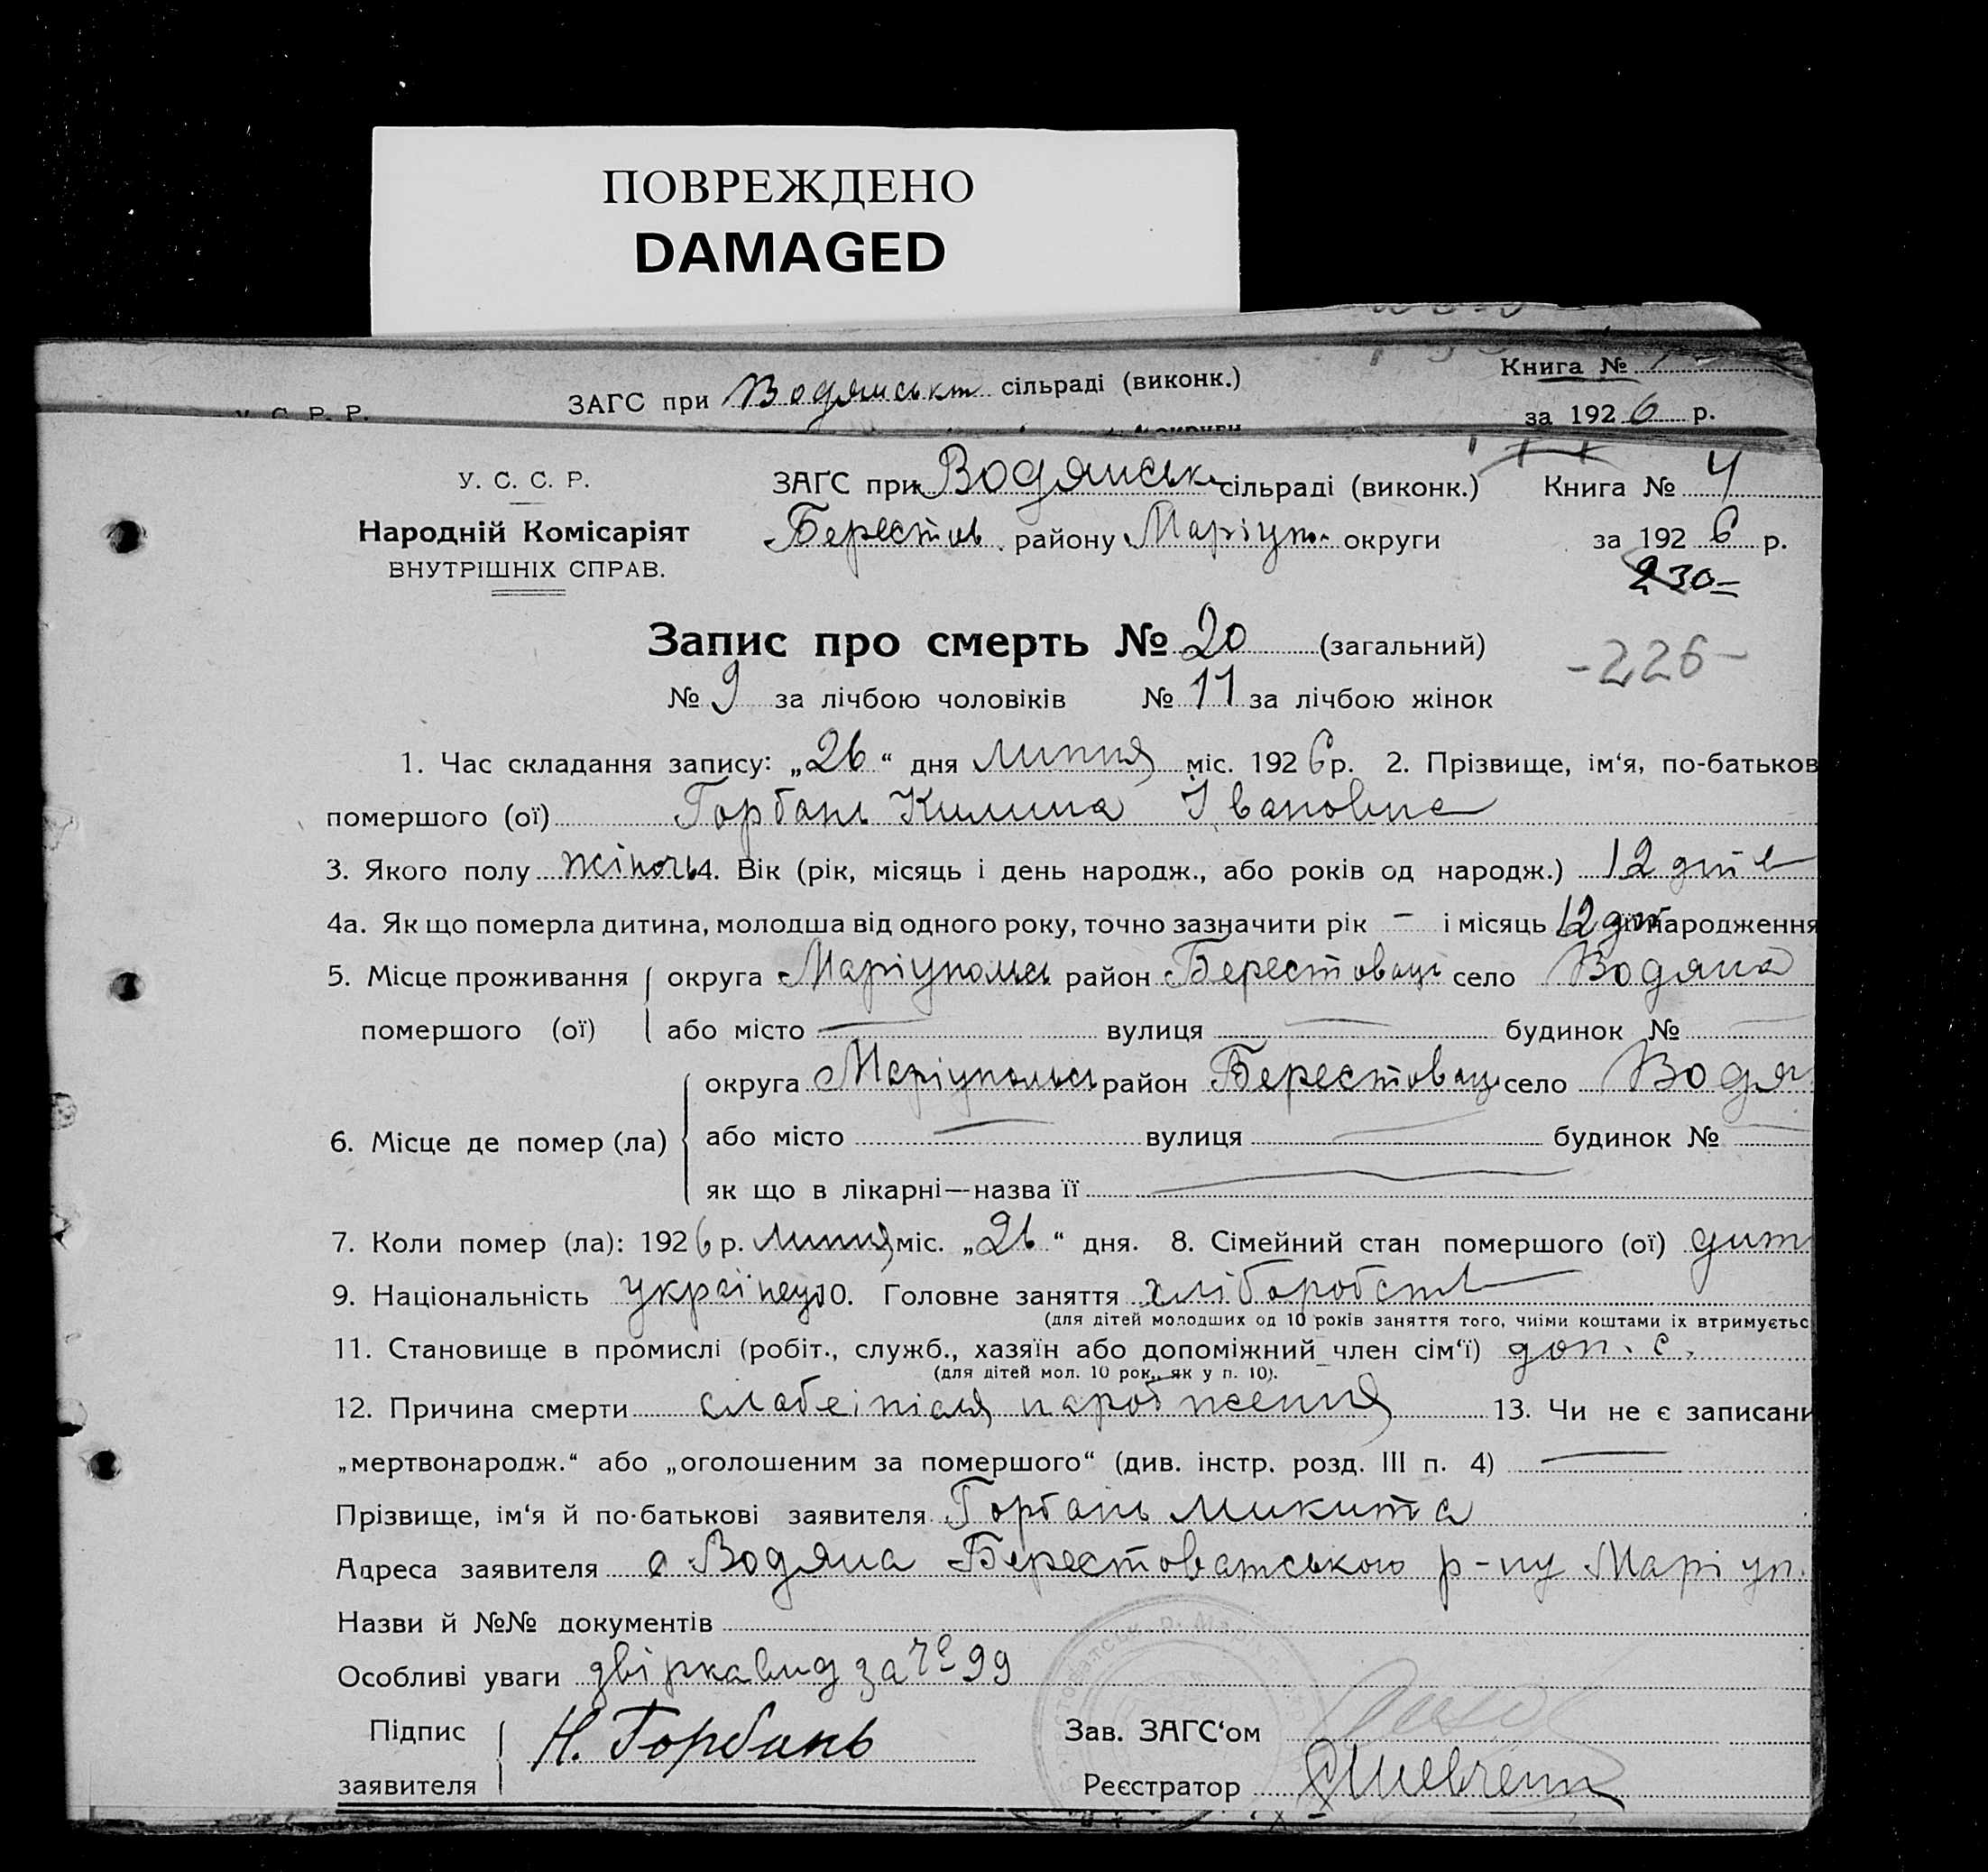 ПОВРЕЖДЕНО
DAMAGED
ЗАГС при Водянськ сільраді (виконк.) Книга №
У. С. Р. Р. за 1926 р.
У. С. С. Р. ЗАГС при Водянськ сільраді (виконк.) Книга № 4
Народній Комісаріят Берестов. району Маріуп. округи за 1926 р.
ВНУТРІШНІХ СПРАВ. 230
Запис про смерть № 20 (загальний)
-226-
№ 9 за лічбою чоловіків № 11 за лічбою жінок
1. Час складання запису: „26“ дня липня міс. 1926 р. 2. Прізвище, ім‘я, по-батьков
помершого (ої) Горбань Килина Івановна
3. Якого полу жіноч 4. Вік (рік, місяць і день народж., або років од народж.) 12 дн
4а. Як що померла дитина, молодша від одного року, точно зазначити рік – і місяць 12 дн народження
5. Місце проживання округа Маріупольсь район Берестоваць село Водяна
помершого (ої) або місто — вулиця — будинок № —
округа Маріупольсь район Берестоваць село Водя
6. Місце де помер (ла) або місто — вулиця — будинок № —
як що в лікарні—назва її —
7. Коли помер (ла): 1926 р. липня міс. „26“ дня. 8. Сімейний стан помершого (ої) дит
9. Національність україн 10. Головне заняття хліборобств
(для дітей молодших од 10 років заняття того, чиїми коштами їх втримуєтьс
11. Становище в промислі (робіт., служб., хазяїн або допоміжний член сім‘ї) доп. с.
(для дітей мол. 10 рок., як у п. 10).
12. Причина смерти після народження 13. Чи не є записани
„мертвонародж.“ або „оголошеним за помершого“ (див. інстр. розд. III п. 4) —
Прізвище, ім‘я й по-батькові заявителя Горбань Микита
Адреса заявителя с Водяна Берестоватського р-ну Маріуп.
Назви й №№ документів
Особливі уваги за № 99
Підпис Н. Горбань Зав. ЗАГС‘ом
заявителя Реєстратор Шевченк